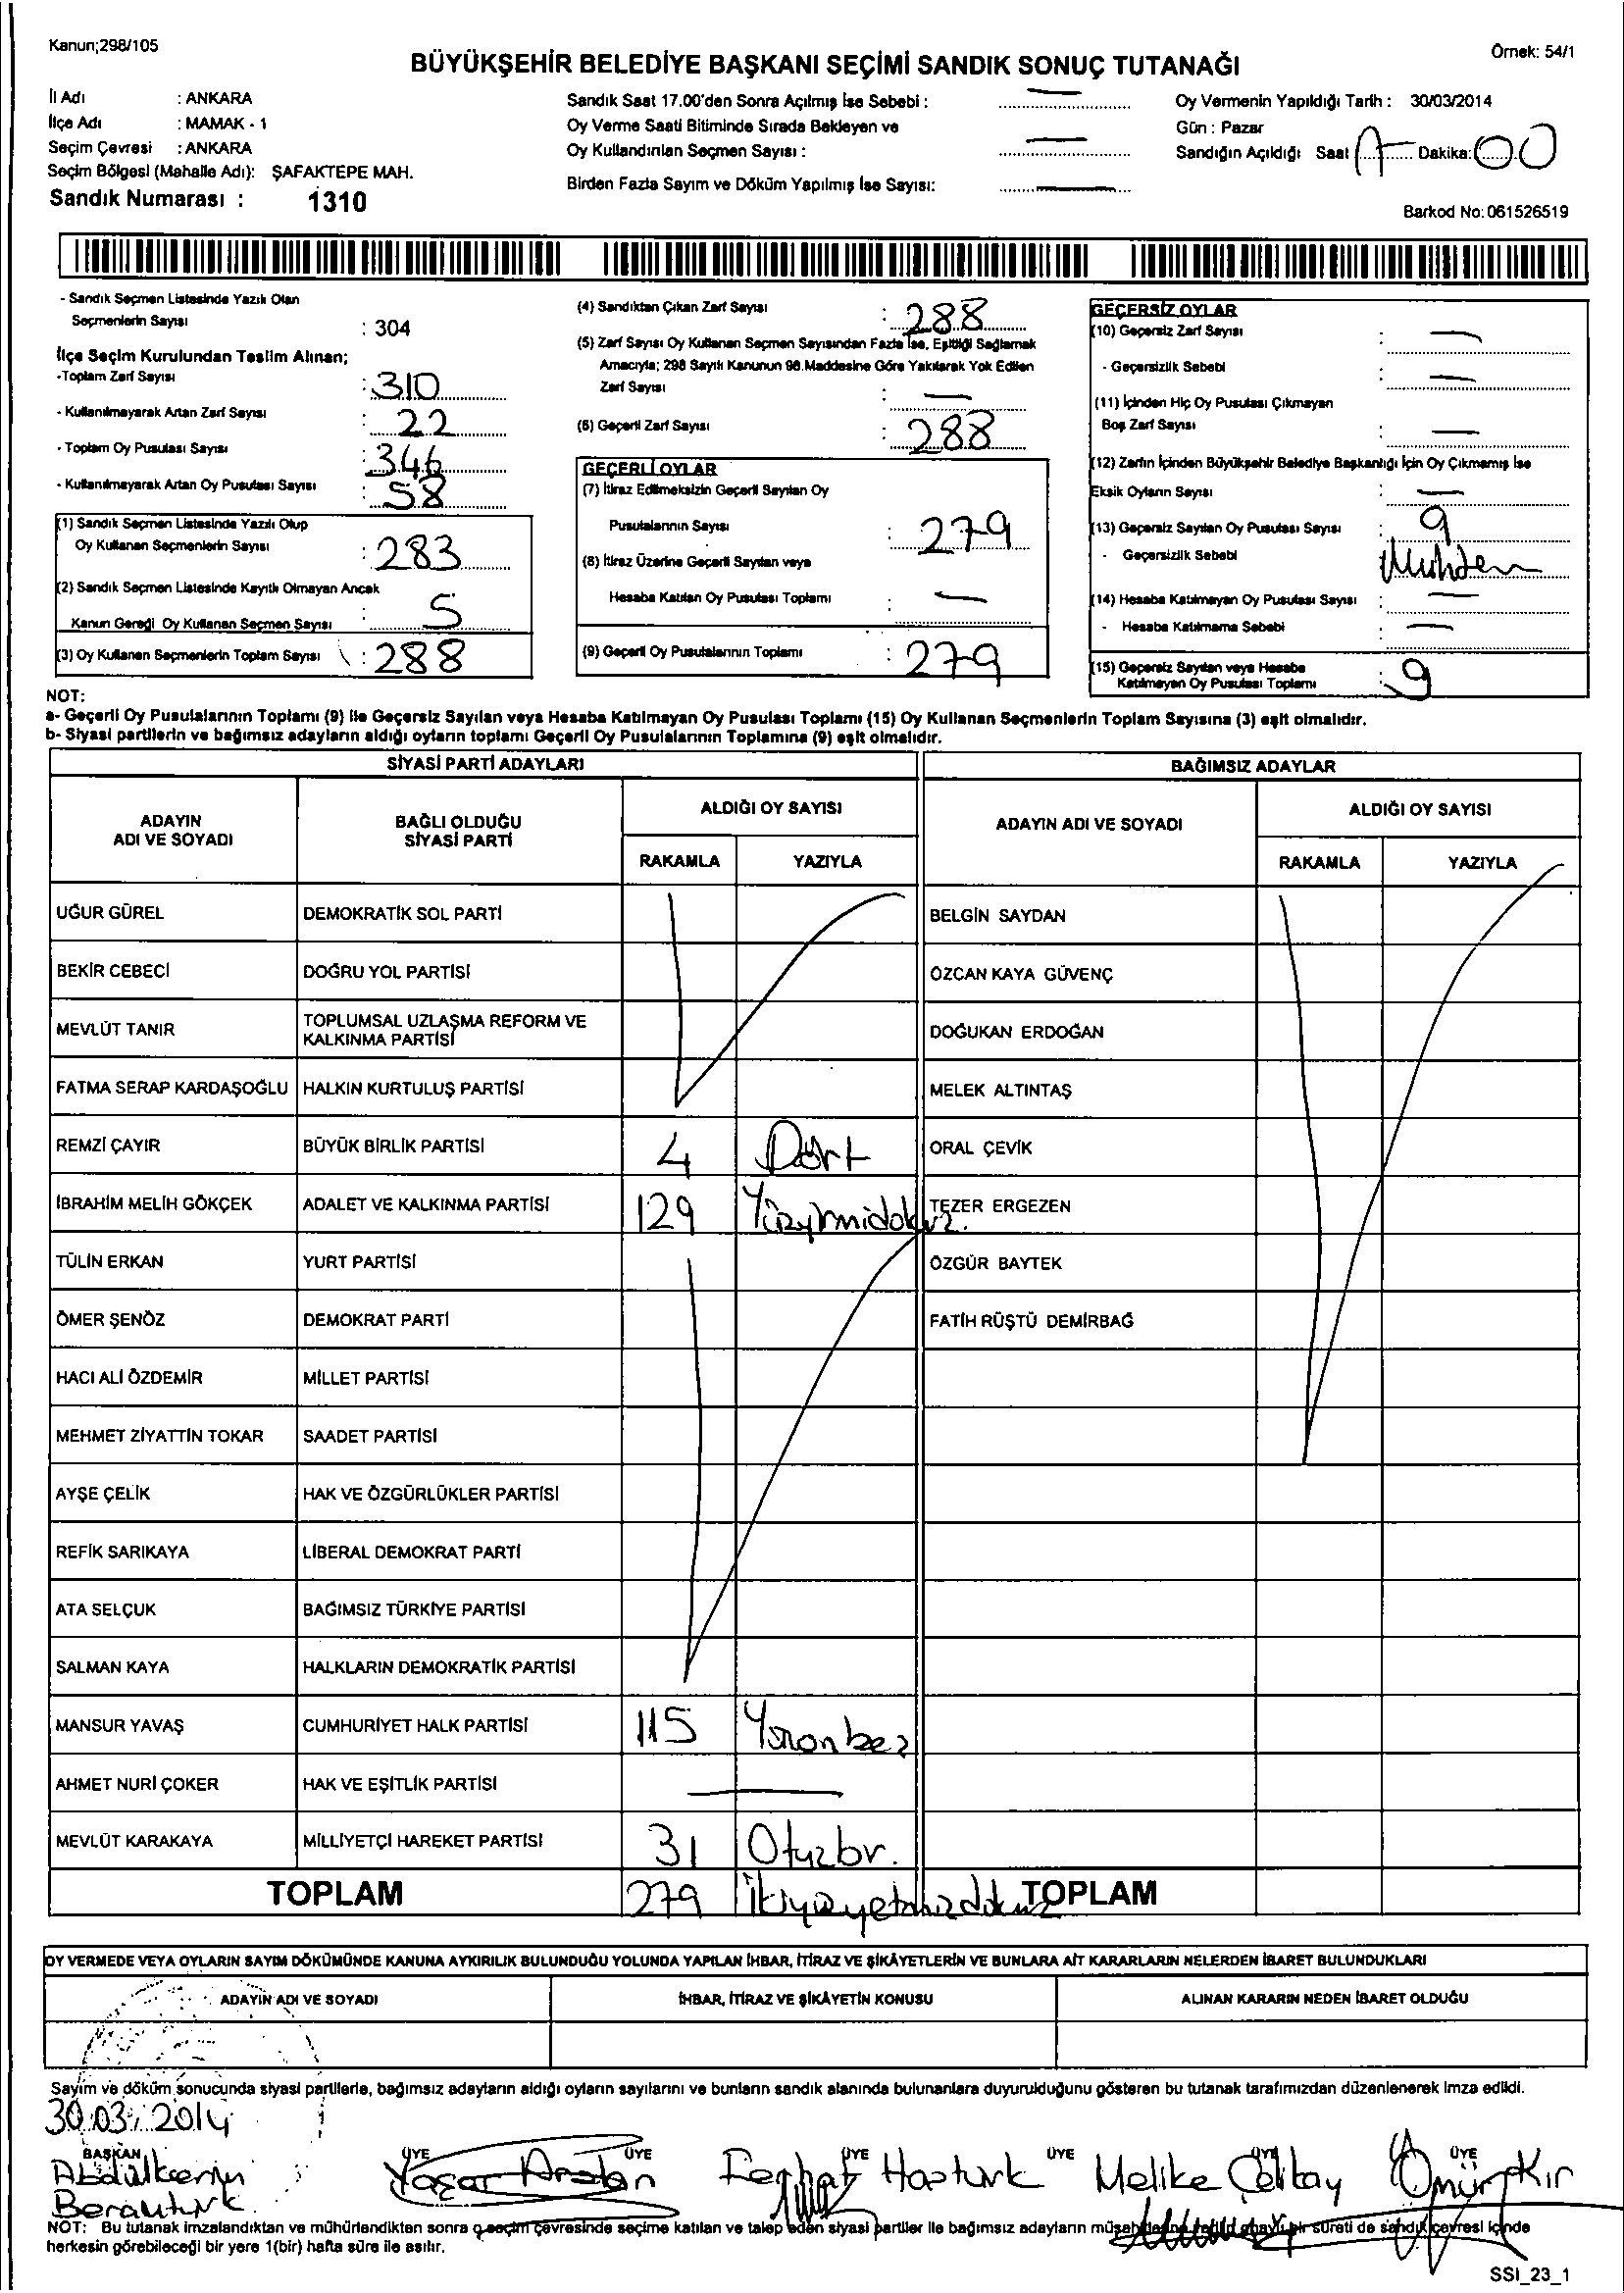 Kanun;298/105
Örnek: 54/1
BÜYÜKŞEHİR BELEDİYE BAŞKANI SEÇİMİ SANDIK SONUÇ TUTANAĞI
İl Adı : ANKARA
İlçe Adı : MAMAK - 1
Seçim Çevresi : ANKARA
Seçim Bölgesi (Mahalle Adı): ŞAFAKTEPE MAH.
Sandık Numarası : 1310
Sandık Saat 17.00'den Sonra Açılmış İse Sebebi : —
Oy Verme Saati Bitiminde Sırada Bekleyen ve
Oy Kullandırılan Seçmen Sayısı : —
Birden Fazla Sayım ve Döküm Yapılmış İse Sayısı: —
Oy Vermenin Yapıldığı Tarih : 30/03/2014
Gün : Pazar
Sandığın Açıldığı Saat 17 Dakika: 00
Barkod No: 061526519
- Sandık Seçmen Listesinde Yazılı Olan
Seçmenlerin Sayısı : 304
İlçe Seçim Kurulundan Teslim Alınan;
-Toplam Zarf Sayısı : 310
- Kullanılmayarak Artan Zarf Sayısı : 22
- Toplam Oy Pusulası Sayısı : 346
- Kullanılmayarak Artan Oy Pusulası Sayısı : 58
(1) Sandık Seçmen Listesinde Yazılı Olup
Oy Kullanan Seçmenlerin Sayısı : 283
(2) Sandık Seçmen Listesinde Kayıtlı Olmayan Ancak
Kanun Gereği Oy Kullanan Seçmen Sayısı : 5
(3) Oy Kullanan Seçmenlerin Toplam Sayısı : 288
(4) Sandıktan Çıkan Zarf Sayısı : 288
(5) Zarf Sayısı Oy Kullanan Seçmen Sayısından Fazla İse, Eşitliği Sağlamak
Amacıyla; 298 Sayılı Kanunun 98.Maddesine Göre Yakılarak Yok Edilen
Zarf Sayısı : —
(6) Geçerli Zarf Sayısı : 288
GEÇERLİ OYLAR
(7) İtiraz Edilmeksizin Geçerli Sayılan Oy
Pusulalarının Sayısı : 279
(8) İtiraz Üzerine Geçerli Sayılan veya
Hesaba Katılan Oy Pusulası Toplamı : —
(9) Geçerli Oy Pusulalarının Toplamı : 279
GEÇERSİZ OYLAR
(10) Geçersiz Zarf Sayısı : —
- Geçersizlik Sebebi : —
(11) İçinden Hiç Oy Pusulası Çıkmayan
Boş Zarf Sayısı : —
(12) Zarfın İçinden Büyükşehir Belediye Başkanlığı İçin Oy Çıkmamış İse
Eksik Oyların Sayısı : —
(13) Geçersiz Sayılan Oy Pusulası Sayısı : 9
- Geçersizlik Sebebi : Mühden
(14) Hesaba Katılmayan Oy Pusulası Sayısı : —
- Hesaba Katılmama Sebebi : —
(15) Geçersiz Sayılan veya Hesaba
Katılmayan Oy Pusulası Toplamı : 9
NOT:
a- Geçerli Oy Pusulalarının Toplamı (9) ile Geçersiz Sayılan veya Hesaba Katılmayan Oy Pusulası Toplamı (15) Oy Kullanan Seçmenlerin Toplam Sayısına (3) eşit olmalıdır.
b- Siyasi partilerin ve bağımsız adayların aldığı oyların toplamı Geçerli Oy Pusulalarının Toplamına (9) eşit olmalıdır.
SİYASİ PARTİ ADAYLARI BAĞIMSIZ ADAYLAR
ADAYIN ADI VE SOYADI BAĞLI OLDUĞU SİYASİ PARTİ ALDIĞI OY SAYISI ADAYIN ADI VE SOYADI ALDIĞI OY SAYISI
RAKAMLA YAZIYLA RAKAMLA YAZIYLA
UĞUR GÜREL DEMOKRATİK SOL PARTİ BELGİN SAYDAN
BEKİR CEBECİ DOĞRU YOL PARTİSİ ÖZCAN KAYA GÜVENÇ
MEVLÜT TANIR TOPLUMSAL UZLAŞMA REFORM VE KALKINMA PARTİSİ DOĞUKAN ERDOĞAN
FATMA SERAP KARDAŞOĞLU HALKIN KURTULUŞ PARTİSİ MELEK ALTINTAŞ
REMZİ ÇAYIR BÜYÜK BİRLİK PARTİSİ 4 Dört ORAL ÇEVİK
İBRAHİM MELİH GÖKÇEK ADALET VE KALKINMA PARTİSİ 129 Yüzyirmidokuz. TEZER ERGEZEN
TÜLİN ERKAN YURT PARTİSİ ÖZGÜR BAYTEK
ÖMER ŞENÖZ DEMOKRAT PARTİ FATİH RÜŞTÜ DEMİRBAĞ
HACI ALİ ÖZDEMİR MİLLET PARTİSİ
MEHMET ZİYATTİN TOKAR SAADET PARTİSİ
AYŞE ÇELİK HAK VE ÖZGÜRLÜKLER PARTİSİ
REFİK SARIKAYA LİBERAL DEMOKRAT PARTİ
ATA SELÇUK BAĞIMSIZ TÜRKİYE PARTİSİ
SALMAN KAYA HALKLARIN DEMOKRATİK PARTİSİ
MANSUR YAVAŞ CUMHURİYET HALK PARTİSİ 115 Yüzonbeş
AHMET NURİ ÇOKER HAK VE EŞİTLİK PARTİSİ —
MEVLÜT KARAKAYA MİLLİYETÇİ HAREKET PARTİSİ 31 Otuzbir.
TOPLAM 279 ikiyüzyetmişdokuz TOPLAM
OY VERMEDE VEYA OYLARIN SAYIM DÖKÜMÜNDE KANUNA AYKIRILIK BULUNDUĞU YOLUNDA YAPILAN İHBAR, İTİRAZ VE ŞİKÂYETLERİN VE BUNLARA AİT KARARLARIN NELERDEN İBARET BULUNDUKLARI
ADAYIN ADI VE SOYADI İHBAR, İTİRAZ VE ŞİKÂYETİN KONUSU ALINAN KARARIN NEDEN İBARET OLDUĞU
Sayım ve döküm sonucunda siyasi partilerle, bağımsız adayların aldığı oyların sayılarını ve bunların sandık alanında bulunanlara duyurulduğunu gösteren bu tutanak tarafımızdan düzenlenerek imza edildi.
30.03.2014
BAŞKAN ÜYE ÜYE ÜYE ÜYE ÜYE ÜYE
Abdülkerim Yaşar Arslan Ferhat Hastürk Melike Çelikay Ömür Kır
NOT: Bu tutanak imzalandıktan ve mühürlendikten sonra o seçim çevresinde seçime katılan ve talep eden siyasi partiler ile bağımsız adayların müşahitlerine tasdikli onaylı bir sureti de sandık çevresi içinde
herkesin görebileceği bir yere 1(bir) hafta süre ile asılır.
SSI_23_1